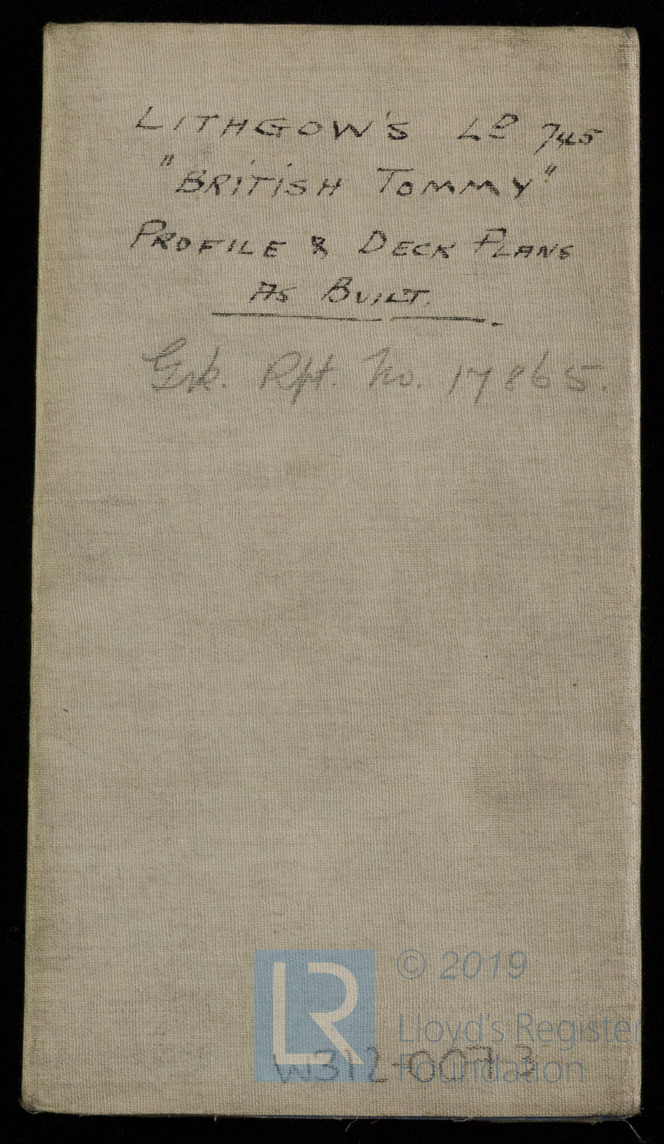 LITHGOW'S LD 745
"BRITISH TOMMY"
PROFILE & DECK PLANS
AS BUILT.
Grk. Rpt. No. 17865.
LR
© 2019
Lloyd's Register
Foundation
W312-0073